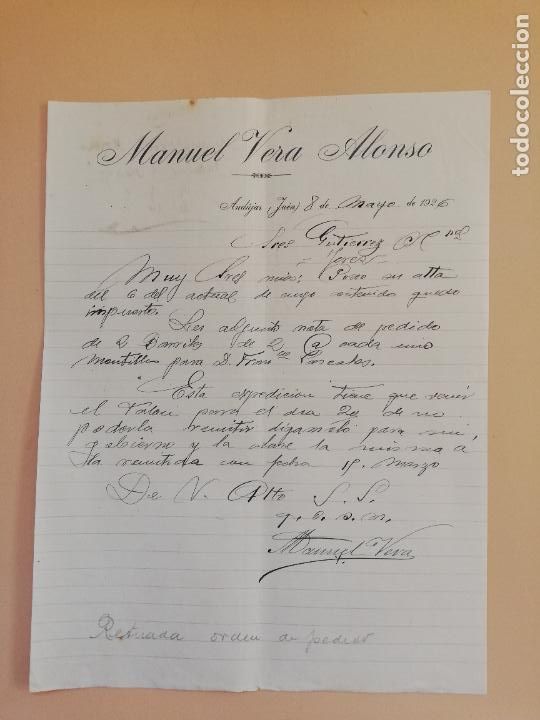 Manuel Vera Alonso
Andújar (Jaén) 8 de Mayo de 1926
Sres Gutierrez
Jerez
Muy Sres mios: Poseo su atta
del 6 del actual de cuyo contenido quedo
impuesto.
Les adjunto nota de pedido
de 2 Barriles de 2 @ cada uno
Montilla para D.
Esta expedicion tiene que venir
el Talon para el dia 20 de no
poderla remitir diganmelo para mi
gobierno y la clase la misma a
la remitida con fecha 15 Marzo
De V. Atto S. S.
q. e. s. m.
Manuel Vera
Retirada orden de pedido
todocoleccion.net